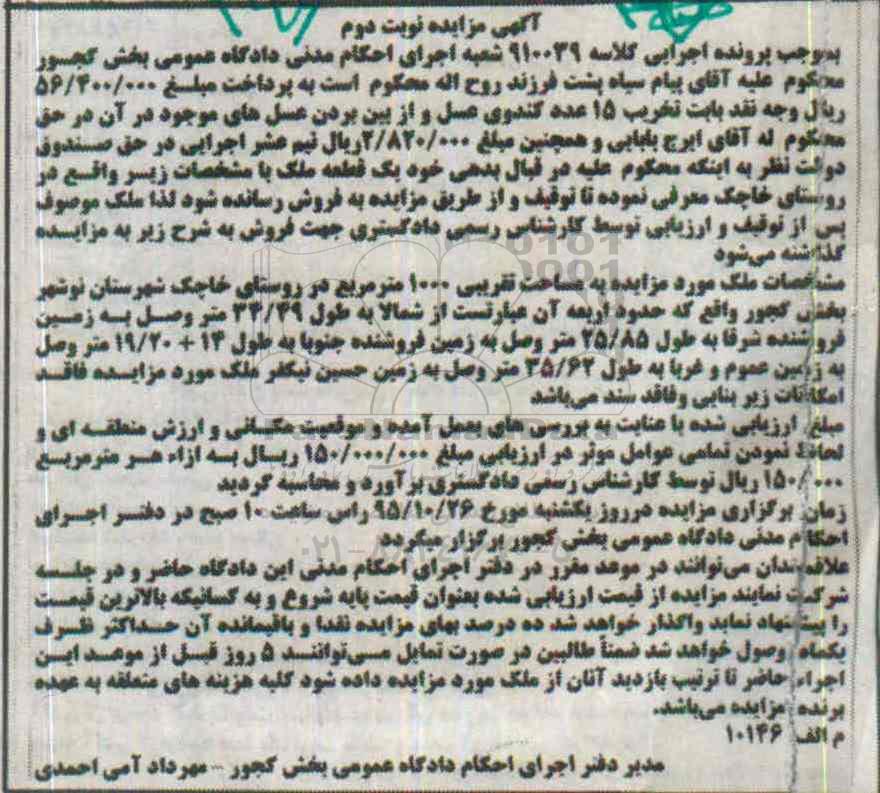 آگهی مزایده نوبت دوم
بموجب پرونده اجرایی کلاسه ۹۱۰۰۳۹ شعبه اجرای احکام مدنی دادگاه عمومی بخش کجور
محکوم علیه آقای پیام سیاه پشت فرزند روح اله محکوم است به پرداخت مبلغ ۵۶/۴۰۰/۰۰۰
ریال وجه نقد بابت تخریب ۱۵ عدد کندوی عسل و از بین بردن عسل های موجود در آن در حق
محکوم له آقای ایرج بابایی و همچنین مبلغ ۲/۸۲۰/۰۰۰ریال نیم عشر اجرایی در حق صندوق
دولت نظر به اینکه محکوم علیه در قبال بدهی خود یک قطعه ملک با مشخصات زیر واقع در
روستای خاچک معرفی نموده تا توقیف و از طریق مزایده به فروش رسانده شود لذا ملک موصوف
پس از توقیف و ارزیابی توسط کارشناس رسمی دادگستری جهت فروش به شرح زیر به مزایده
گذاشته می‌شود
مشخصات ملک مورد مزایده به مساحت تقریبی ۱۰۰۰ مترمربع در روستای خاچک شهرستان نوشهر
بخش کجور واقع که حدود اربعه آن عبارتست از شمالا به طول ۳۴/۴۹ متر وصل به زمین
فروشنده شرقا به طول ۲۵/۸۵ متر وصل به زمین فروشنده جنوبا به طول ۱۴ + ۱۹/۲۰ متر وصل
به زمین عموم و غربا به طول ۳۵/۶۲ متر وصل به زمین حسین نیکفر ملک مورد مزایده فاقد
امکانات زیر بنایی وفاقد سند می‌باشد
مبلغ ارزیابی شده با عنایت به بررسی های بعمل آمده و موقعیت مکانی و ارزش منطقه ای و
لحاظ نمودن تمامی عوامل موثر در ارزیابی مبلغ ۱۵۰/۰۰۰/۰۰۰ ریال به ازاء هر مترمربع
۱۵۰/۰۰۰ ریال توسط کارشناس رسمی دادگستری برآورد و محاسبه گردید
زمان برگزاری مزایده درروز یکشنبه مورخ ۹۵/۱۰/۲۶ راس ساعت ۱۰ صبح در دفتر اجرای
احکام مدنی دادگاه عمومی بخش کجور برگزار میگردد
علاقمندان می‌توانند در موعد مقرر در دفتر اجرای احکام مدنی این دادگاه حاضر و در جلسه
شرکت نمایند مزایده از قیمت ارزیابی شده بعنوان قیمت پایه شروع و به کسانیکه بالاترین قیمت
را پیشنهاد نماید واگذار خواهد شد ده درصد بهای مزایده نقدا و باقیمانده آن حداکثر ظرف
یکماه وصول خواهد شد ضمناً طالبین در صورت تمایل می‌توانند ۵ روز قبل از موعد این
اجراء حاضر تا ترتیب بازدید آنان از ملک مورد مزایده داده شود کلیه هزینه های متعلقه به عهده
برنده مزایده می‌باشد.
م الف ۱۰۱۴۶
مدیر دفتر اجرای احکام دادگاه عمومی بخش کجور – مهرداد آمی احمدی